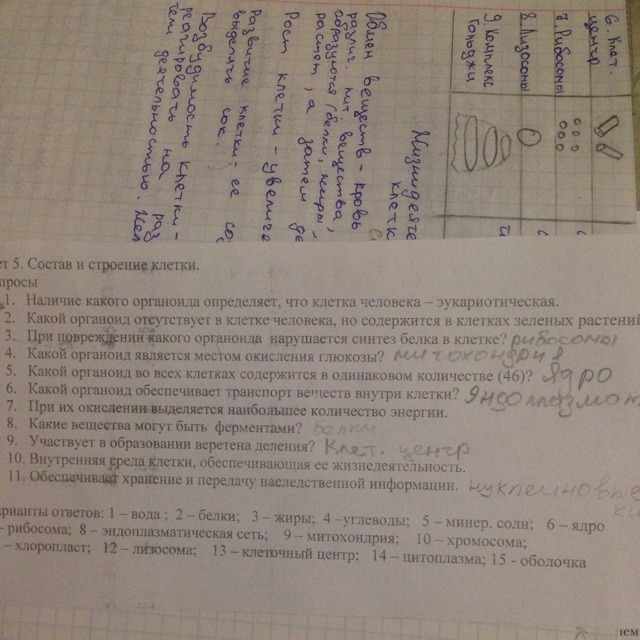 6. Клет.
центр
7. Рибосомы
8. Лизосомы
9. Комплекс
Гольджи
Жизнедеяте
клетк
Обмен веществ - кровь
различ. пит. вещества,
образуются (белки, жиры,
растет, а затем де
Рост клетки - увеличе
Развитие клетки - ее со
выделить сок.
Возбудимость клетки -
реагировать на раз
тем деятельностью. Жел
ет 5. Состав и строение клетки.
просы
1. Наличие какого органоида определяет, что клетка человека – эукариотическая.
2. Какой органоид отсутствует в клетке человека, но содержится в клетках зеленых растений
3. При повреждении какого органоида нарушается синтез белка в клетке? рибосомы
4. Какой органоид является местом окисления глюкозы? митохондрия
5. Какой органоид во всех клетках содержится в одинаковом количестве (46)? Ядро
6. Какой органоид обеспечивает транспорт веществ внутри клетки? Эндоплазмат
7. При их окислении выделяется наибольшее количество энергии.
8. Какие вещества могут быть ферментами? белки
9. Участвует в образовании веретена деления? Клет. центр
10. Внутренняя среда клетки, обеспечивающая ее жизнедеятельность.
11. Обеспечивает хранение и передачу наследственной информации. нуклеиновые
ки
арианты ответов: 1 – вода ; 2 – белки; 3 – жиры; 4 –углеводы; 5 – минер. соли; 6 – ядро
– рибосома; 8 – эндоплазматическая сеть; 9 – митохондрия; 10 – хромосома;
– хлоропласт; 12 – лизосома; 13 – клеточный центр; 14 – цитоплазма; 15 - оболочка